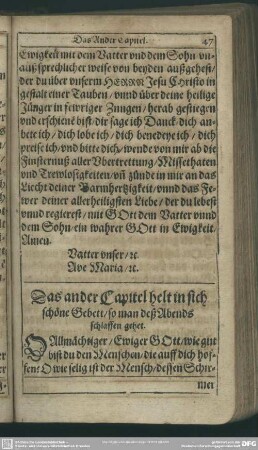 Das Ander Capitel. 47
Ewigkeit mit dem Vatter vnd dem Sohn vn-
außsprechlicher weise von beyden außgehest/
der du über vnserm HERRN Jesu Christo in
gestalt einer Tauben/ vnnd über deine heilige
Jünger in fewriger Zungen/ herab gestiegen
vnd erschienē bist/ dir sage ich Danck/ dich an-
bete ich/ dich lobe ich/ dich benedeye ich/ dich
preise ich/ vnd bitte dich/ wende von mir ab die
Finsternuß aller Vbertrettung/ Missethaten
vnd Trewlosigkeiten/ vñ zünde in mir an das
Liecht deiner Barmhertzigkeit/ vnnd das Fe-
wer deiner allerheiligsten Liebe/ der du lebest
vnnd regierest/ mit GOtt dem Vatter vnnd
dem Sohn-ein wahrer GOtt in Ewigkeit/
Amen.
Vatter vnser/ ꝛc.
Ave Maria/ ꝛc.
Das ander Capitel helt in sich
schöne Gebett/ so man deß Abends
schlaffen gehet.
O Allmächtiger/ Ewiger GOtt/ wie gut
bist du den Menschen/ die auff dich hof-
fen? O wie selig ist der Mensch/ dessen Schir-
mer